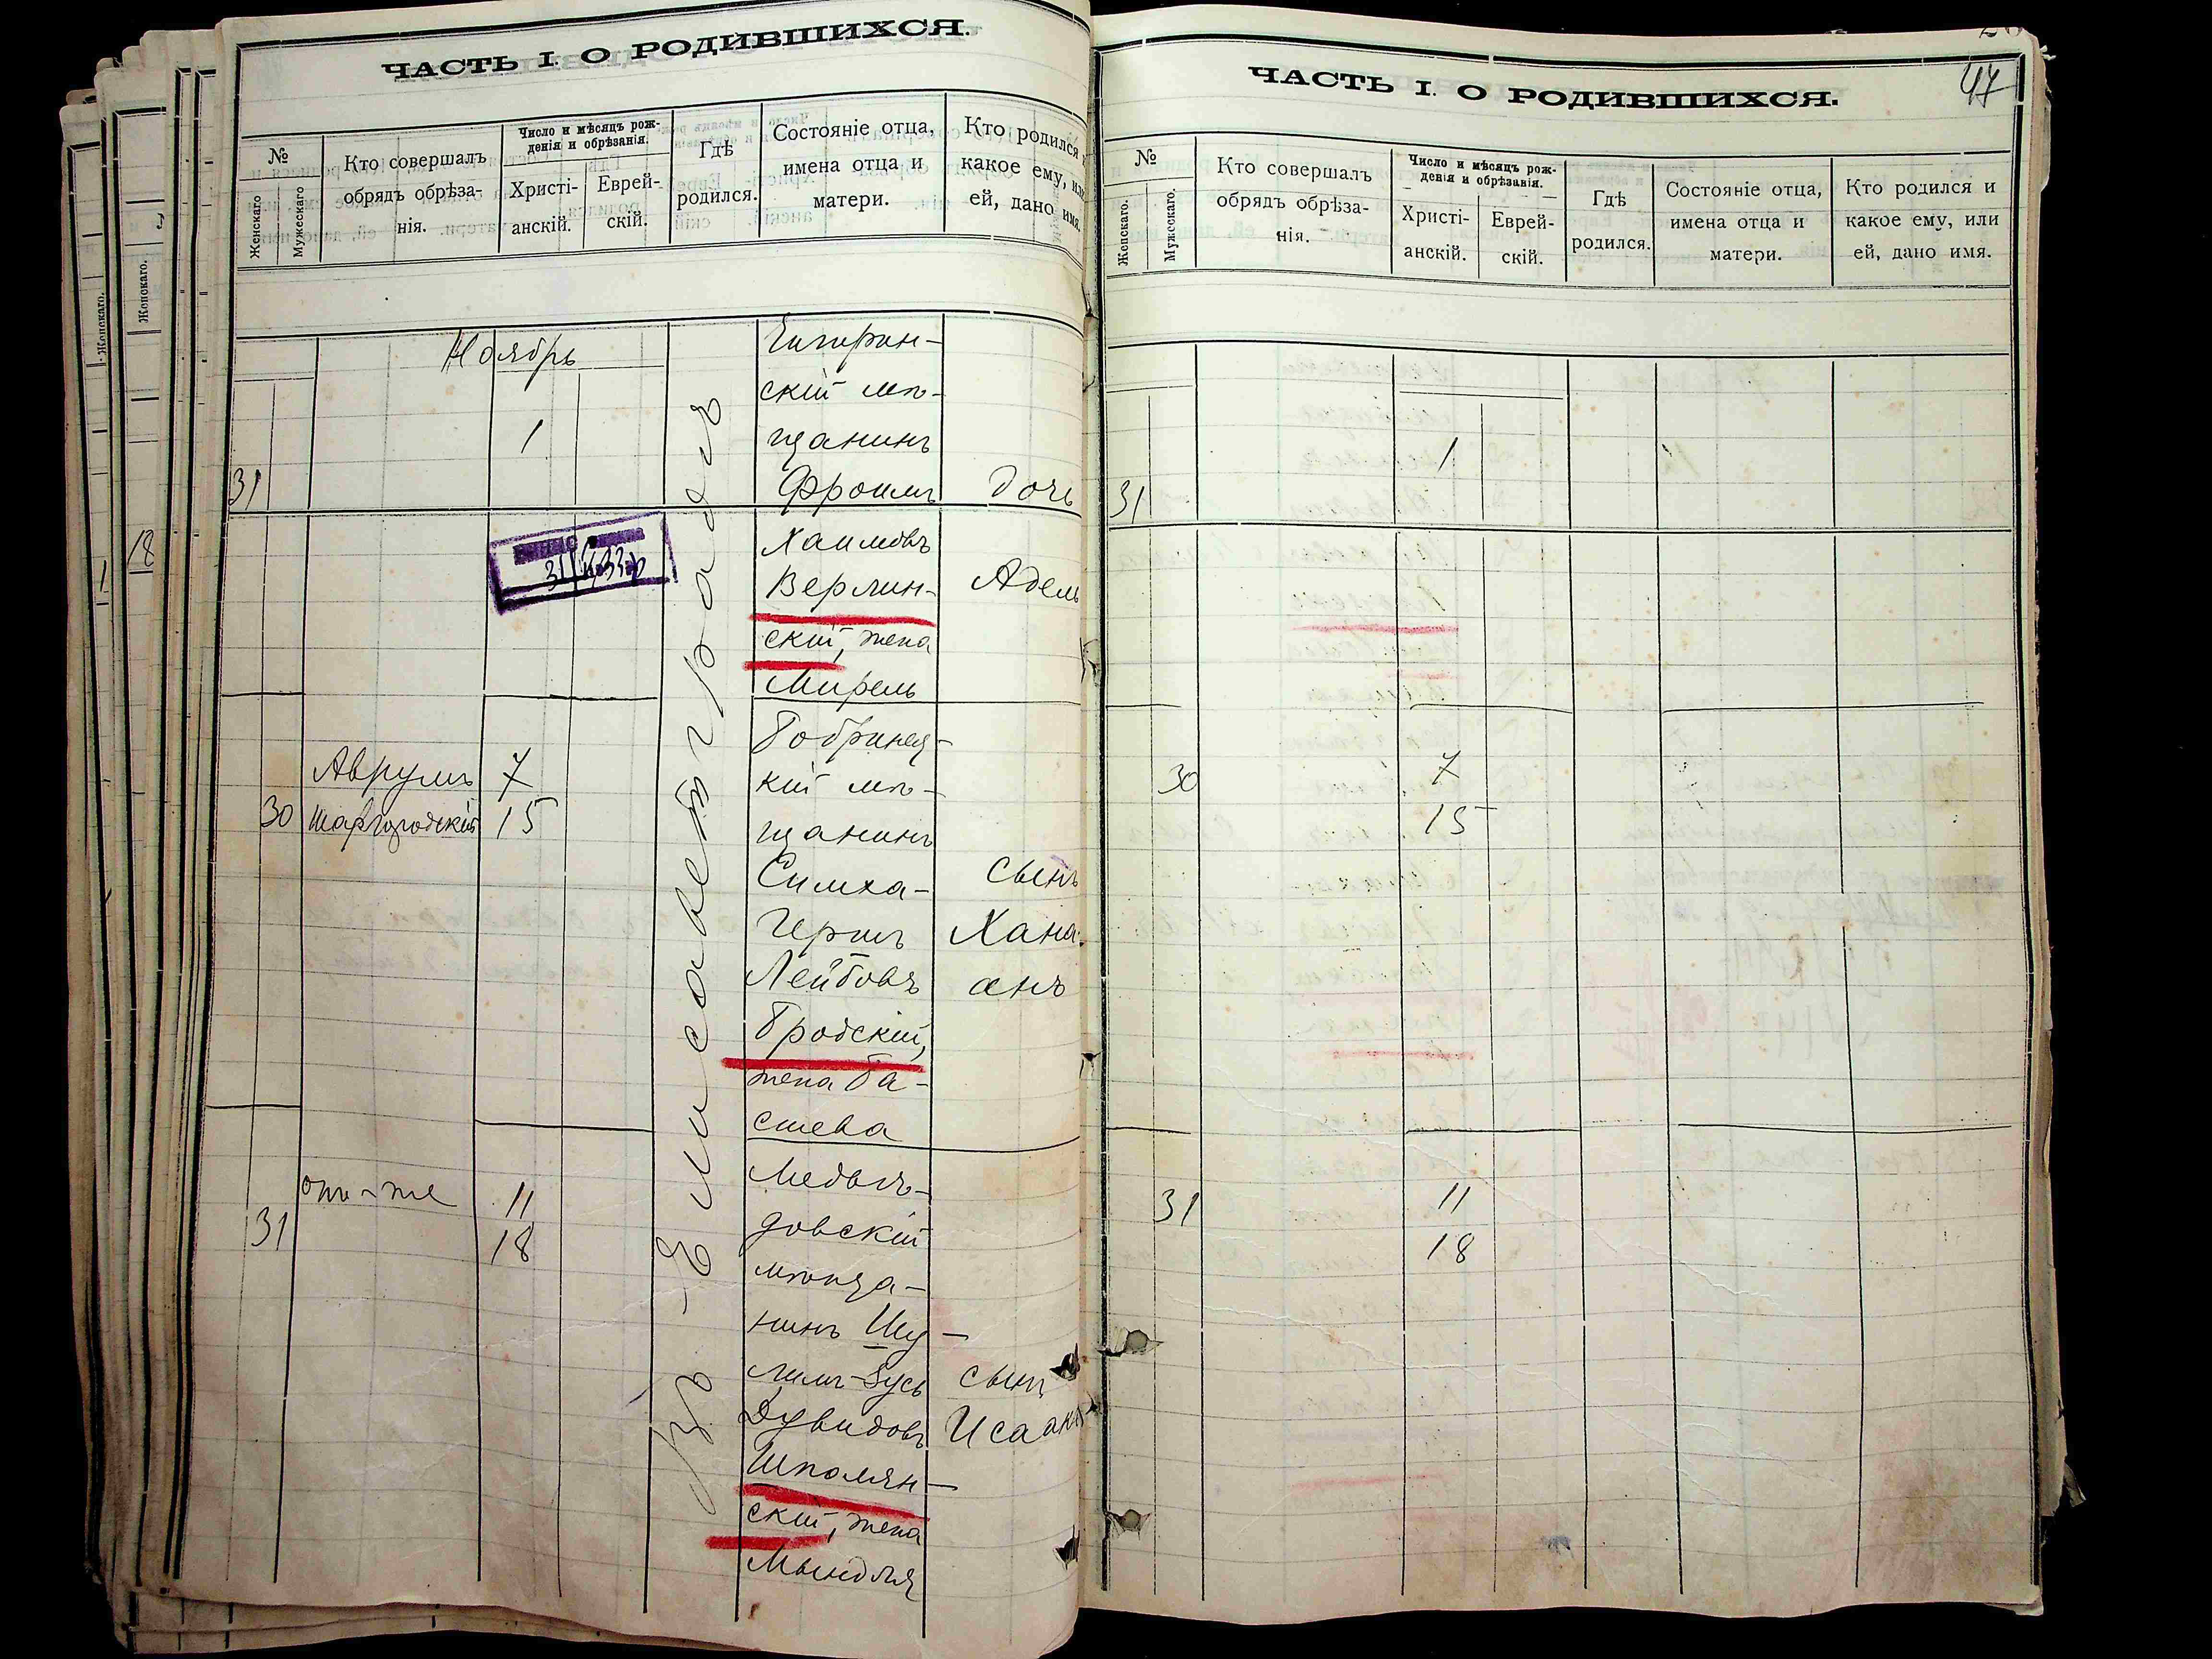 ЧАСТЬ I. О РОДИВШИХСЯ.
№
Женскаго
Мужескаго
Кто совершалъ
обрядъ обрѣза-
нія.
Число и мѣсяцъ рож-
денія и обрѣзанія.
Христі-
анскій.
Еврей-
скій.
Гдѣ
родился.
Состояніе отца,
имена отца и
матери.
Кто родился
какое ему, или
ей, дано имя.
Ноябрь
въ Елисаветградѣ
31
1
Чигирин-
скій мѣ-
щанинъ
Фроимъ
Хаимовъ
Берлин-
скій, жена
Мирель
дочь
Адель
31
30
Аврумъ
Шаргородскій
7
15
Бобринец-
кій мѣ-
щанинъ
Симха-
Герш
Лейбовъ
Бродскій,
жена Ба-
сшева
сынъ
Хана-
анъ
31
онъ-же
11
18
Медвѣ-
довскій
мѣща-
нинъ Шу-
лимъ-Зусь
Дувидовъ
Шполян-
скій, жена
Мындля
сынъ
Исаакъ
Женскаго.
Женскаго.
18
47
ЧАСТЬ I. О РОДИВШИХСЯ.
№
Женскаго.
Мужескаго.
Кто совершалъ
обрядъ обрѣза-
нія.
Число и мѣсяцъ рож-
денія и обрѣзанія.
Христі-
анскій.
Еврей-
скій.
Гдѣ
родился.
Состояніе отца,
имена отца и
матери.
Кто родился и
какое ему, или
ей, дано имя.
31
1
30
7
15
31
11
18